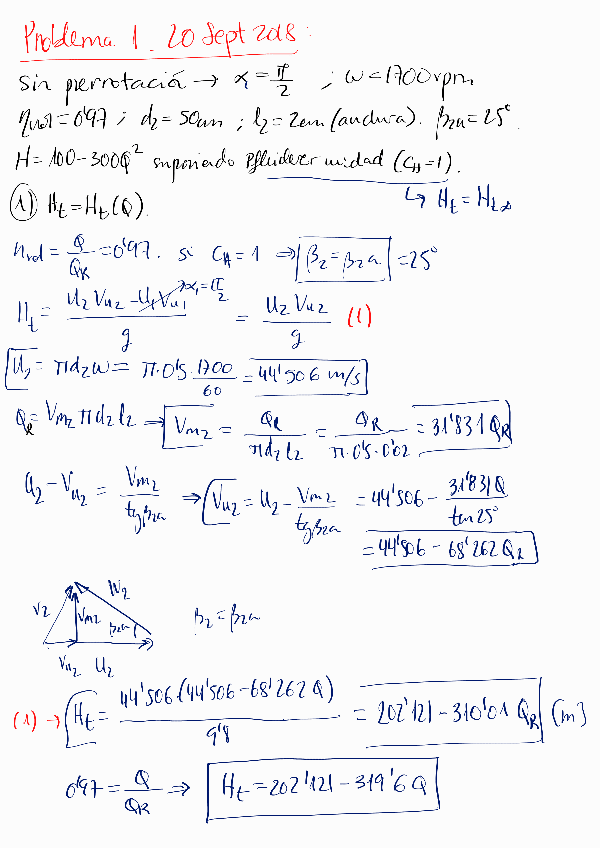 Problema 1. 20 Sept 2018:
sin prerrotació → α₁ = π/2 ; ω = 1700 rpm
ηvol = 0'97 ; d₂ = 50cm ; l₂ = 2cm (anchura). β₂a = 25°
H = 100 - 300Q² suponiendo Pfleiderer unidad (CH = 1).
↳ Ht = Ht∞
① Ht = Ht(Q).
ηvol = Q/QR = 0'97. si CH = 1 ⇒ β₂ = β₂a = 25°
Ht = (U₂ Vu₂ - U₁ Vu₁)/g = U₂ Vu₂/g (1)
α₁ = π/2
U₂ = πd₂ω = π·0'5·1700/60 = 44'506 m/s
QR = Vm₂ πd₂l₂ → Vm₂ = QR/πd₂l₂ = QR/π·0'5·0'02 = 31'831 QR
U₂ - Vu₂ = Vm₂/tgβ₂a ⇒ Vu₂ = U₂ - Vm₂/tgβ₂a = 44'506 - 31'831Q/tan25°
= 44'506 - 68'262 QR
W₂
V₂ Vm₂ β₂a β₂ = β₂a
Vu₂ U₂
(1) → Ht = 44'506·(44'506 - 68'262Q)/9'8 = 202'121 - 310'01 QR (m)
0'97 = Q/QR ⇒ Ht = 202'121 - 319'6 Q